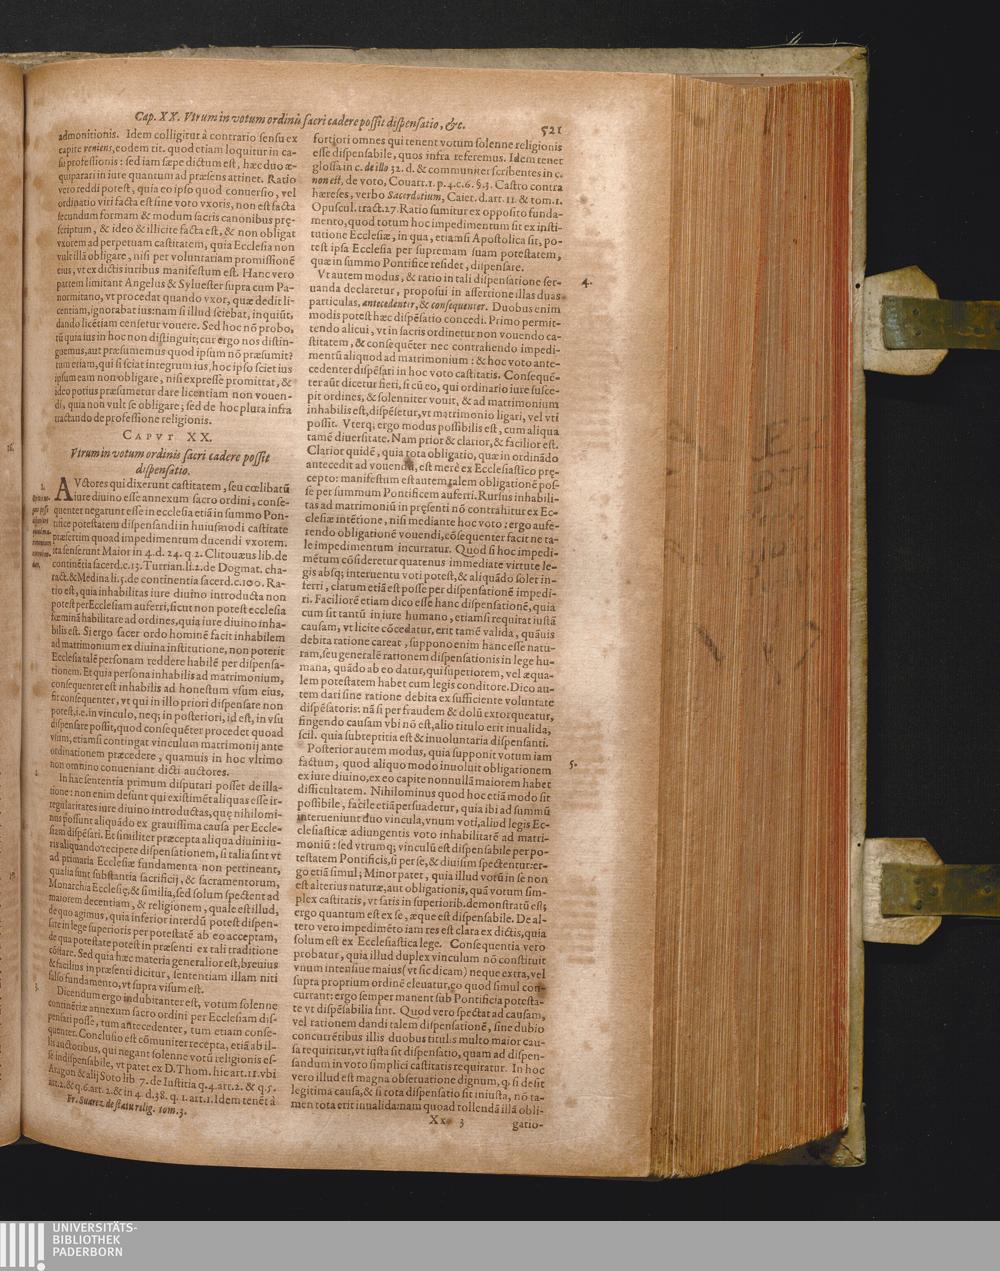 Cap. XX. Vtrum in votum ordinis sacri cadere possit dispensatio, &c.
521
admonitionis. Idem colligitur à contrario sensu ex
capite veniens, eodem tit. quod etiam loquitur in ca-
su professionis: sed iam sæpe dictum est, hæc duo æ-
quiparari in iure quantum ad præsens attinet. Ratio
vero reddi potest, quia eo ipso quod conuersio, vel
ordinatio viri facta est sine voto vxoris, non est facta
secundum formam & modum sacris canonibus prę-
scriptum, & ideo & illicite facta est, & non obligat
vxorem ad perpetuam castitatem, quia Ecclesia non
vult illā obligare, nisi per voluntariam promissionē
eius, vt ex dictis iuribus manifestum est. Hanc vero
partem limitant Angelus & Syluester supra cum Pa-
normitano, vt procedat quando vxor, quæ dedit li-
centiam, ignorabat ius: nam si illud sciebat, inquiūt,
dando licētiam censetur vouere. Sed hoc nō probo,
tū quia ius in hoc non distinguit; cur ergo nos distin-
guemus, aut præsumemus quod ipsum nō præsumit?
tum etiam, qui si sciat integrum ius, hoc ipso sciet ius
ipsum eam non obligare, nisi expresse promittat, &
ideo potius præsumetur dare licentiam non vouen-
di, quia non vult se obligare; sed de hoc plura infra
tractando de professione religionis.
CAPVT XX.
Vtrum in votum ordinis sacri cadere possit
dispensatio.
AVctores qui dixerunt castitatem, seu cœlibatū
iure diuino esse annexum sacro ordini, conse-
quenter negarunt esse in ecclesia etiā in summo Pon-
tifice potestatem dispensandi in huiusmodi castitate
præsertim quoad impedimentum ducendi vxorem.
ita senserunt Maior in 4. d. 24. q. 2. Clitouæus lib. de
continētia sacerd. c. 13. Turrian. li. 2. de Dogmat. cha-
ract. & Medina li. 5. de continentia sacerd. c. 100. Ra-
tio est, quia inhabilitas iure diuino introducta non
potest per Ecclesiam auferri, sicut non potest ecclesia
fœminā habilitare ad ordines, quia iure diuino inha-
bilis est. Si ergo sacer ordo hominē facit inhabilem
ad matrimonium ex diuina institutione, non poterit
Ecclesia talē personam reddere habilē per dispensa-
tionem. Et quia persona inhabilis ad matrimonium,
consequenter est inhabilis ad honestum vsum eius,
fit consequenter, vt qui in illo priori dispensare non
potest, i.e. in vinculo, neq; in posteriori, id est, in vsu
dispensare possit, quod consequēter procedet quoad
vsum, etiamsi contingat vinculum matrimonij ante
ordinationem præcedere, quamuis in hoc vltimo
non omnino conueniant dicti auctores.
In hac sententia primum disputari posset de illa-
tione: non enim desunt qui existimēt aliquas esse ir-
regularitates iure diuino introductas, quę nihilomi-
nus possunt aliquādo ex grauissima causa per Eccle-
siam dispēsari. Et similiter præcepta aliqua diuini iu-
ris aliquando recipere dispensationem, si talia sint vt
ad primaria Ecclesiæ fundamenta non pertineant,
qualia sunt substantia sacrificij, & sacramentorum,
Monarchia Ecclesię, & similia, sed solum spectent ad
maiorem decentiam, & religionem, quale est illud,
de quo agimus, quia inferior interdū potest dispen-
sare in lege superioris per potestatē ab eo acceptam,
de qua potestate potest in præsenti ex tali traditione
cōstare. Sed quia hæc materia generalior est, breuius
& facilius in præsenti dicitur, sententiam illam niti
falso fundamento, vt supra visum est.
Dicendum ergo indubitanter est, votum solenne
continētiæ annexum sacro ordini per Ecclesiam dis-
pensari posse, tum antecedenter, tum etiam conse-
quenter. Conclusio est cōmuniter recepta, etiā ab il-
lis auctoribus, qui negant solenne votū religionis es-
se indispensabile, vt patet ex D. Thom. hic art. 11. vbi
Aragon & alij Soto lib 7. de Iustitia q. 4. art. 2. & q. 5.
art. 2. & q. 6. art. 2. & in 4. d. 38. q. 1. art. 1. Idem tenēt à
Fr. Suarez de statu relig. tom. 3.
fortiori omnes qui tenent votum solenne religionis
esse dispensabile, quos infra referemus. Idem tenet
glossa in c. de illo 32. d. & communiter scribentes in c.
non est, de voto, Couarr. 1. p. 4. c. 6. §. 3. Castro contra
hæreses, verbo Sacerdotium, Caiet. d. art. 11. & tom. 1.
Opuscul. tract. 27. Ratio sumitur ex opposito funda-
mento, quod totum hoc impedimentum sit ex insti-
tutione Ecclesiæ, in qua, etiamsi Apostolica sit, po-
test ipsa Ecclesia per supremam suam potestatem,
quæ in summo Pontifice residet, dispensare.
4.
Vt autem modus, & ratio in tali dispensatione ser-
uanda declaretur, proposui in assertione illas duas
particulas, antecedenter, & consequenter. Duobus enim
modis potest hæc dispēsatio concedi. Primo permit-
tendo alicui, vt in sacris ordinetur non vouendo ca-
stitatem, & consequēter nec contrahendo impedi-
mentū aliquod ad matrimonium: & hoc voto ante-
cedenter dispēsari in hoc voto castitatis. Consequē-
ter aūt dicetur fieri, si cū eo, qui ordinario iure susce-
pit ordines, & solenniter vouit, & ad matrimonium
inhabilis est, dispēsetur, vt matrimonio ligari, vel vti
possit. Vterq; ergo modus possibilis est, cum aliqua
tamē diuersitate. Nam prior & clarior, & facilior est.
Clarior quidē, quia tota obligatio, quæ in ordinādo
antecedit ad vouendū, est merè ex Ecclesiastico prę-
cepto: manifestum est autem talem obligationē pos-
se per summum Pontificem auferri. Rursus inhabili-
tas ad matrimoniū in pręsenti nō contrahitur ex Ec-
clesiæ intētione, nisi mediante hoc voto: ergo aufe-
rendo obligationē vouendi, cōsequenter facit ne ta-
le impedimentum incurratur. Quod si hoc impedi-
mētum cōsideretur quatenus immediate virtute le-
gis absq; interuentu voti potest, & aliquādo solet in-
ferri, clarum etiā est posse per dispensationē impedi-
ri. Faciliorē etiam dico esse hanc dispensationē, quia
cum sit tantū in iure humano, etiamsi requirat iustā
causam, vt licite cōcedatur, erit tamē valida, quāuis
debita ratione careat, suppono enim hanc esse natu-
ram, seu generalē rationem dispensationis in lege hu-
mana, quādo ab eo datur, qui superiorem, vel æqua-
lem potestatem habet cum legis conditore. Dico au-
tem dari sine ratione debita ex sufficiente voluntate
dispēsatoris: nā si per fraudem & dolū extorqueatur,
fingendo causam vbi nō est, alio titulo erit inualida,
scil. quia subreptitia est & inuoluntaria dispensanti.
5.
Posterior autem modus, quia supponit votum iam
factum, quod aliquo modo inuoluit obligationem
ex iure diuino, ex eo capite nonnullā maiorem habet
difficultatem. Nihilominus quod hoc etiā modo sit
possibile, facile etiā persuadetur, quia ibi ad summū
interueniunt duo vincula, vnum voti, aliud legis Ec-
clesiasticæ adiungentis voto inhabilitatē ad matri-
moniū: sed vtrumq; vinculū est dispensabile per po-
testatem Pontificis, si per se, & diuisim spectentur: er-
go etiā simul; Minor patet, quia illud votū in se non
est alterius naturæ, aut obligationis, quā votum sim-
plex castitatis, vt satis in superiorib. demonstratū est;
ergo quantum est ex se, æque est dispensabile. De al-
tero vero impedimēto iam res est clara ex dictis, quia
solum est ex Ecclesiastica lege. Consequentia vero
probatur, quia illud duplex vinculum nō constituit
vnum intensiue maius (vt sic dicam) neque extra, vel
supra proprium ordinē eleuatur, eo quod simul con-
currant: ergo semper manent sub Pontificia potesta-
te vt dispēsabilia sint. Quod vero spectat ad causam,
vel rationem dandi talem dispensationē, sine dubio
concurrētibus illis duobus titulis multo maior cau-
sa requiritur, vt iusta sit dispensatio, quam ad dispen-
sandum in voto simplici castitatis requiratur. In hoc
vero illud est magna obseruatione dignum, q; si desit
legitima causa, & si tota dispensatio sit iniusta, nō ta-
men tota erit inualida: nam quoad tollendā illā obli-
Xx 3
gatio-
UNIVERSITÄTS-
BIBLIOTHEK
PADERBORN